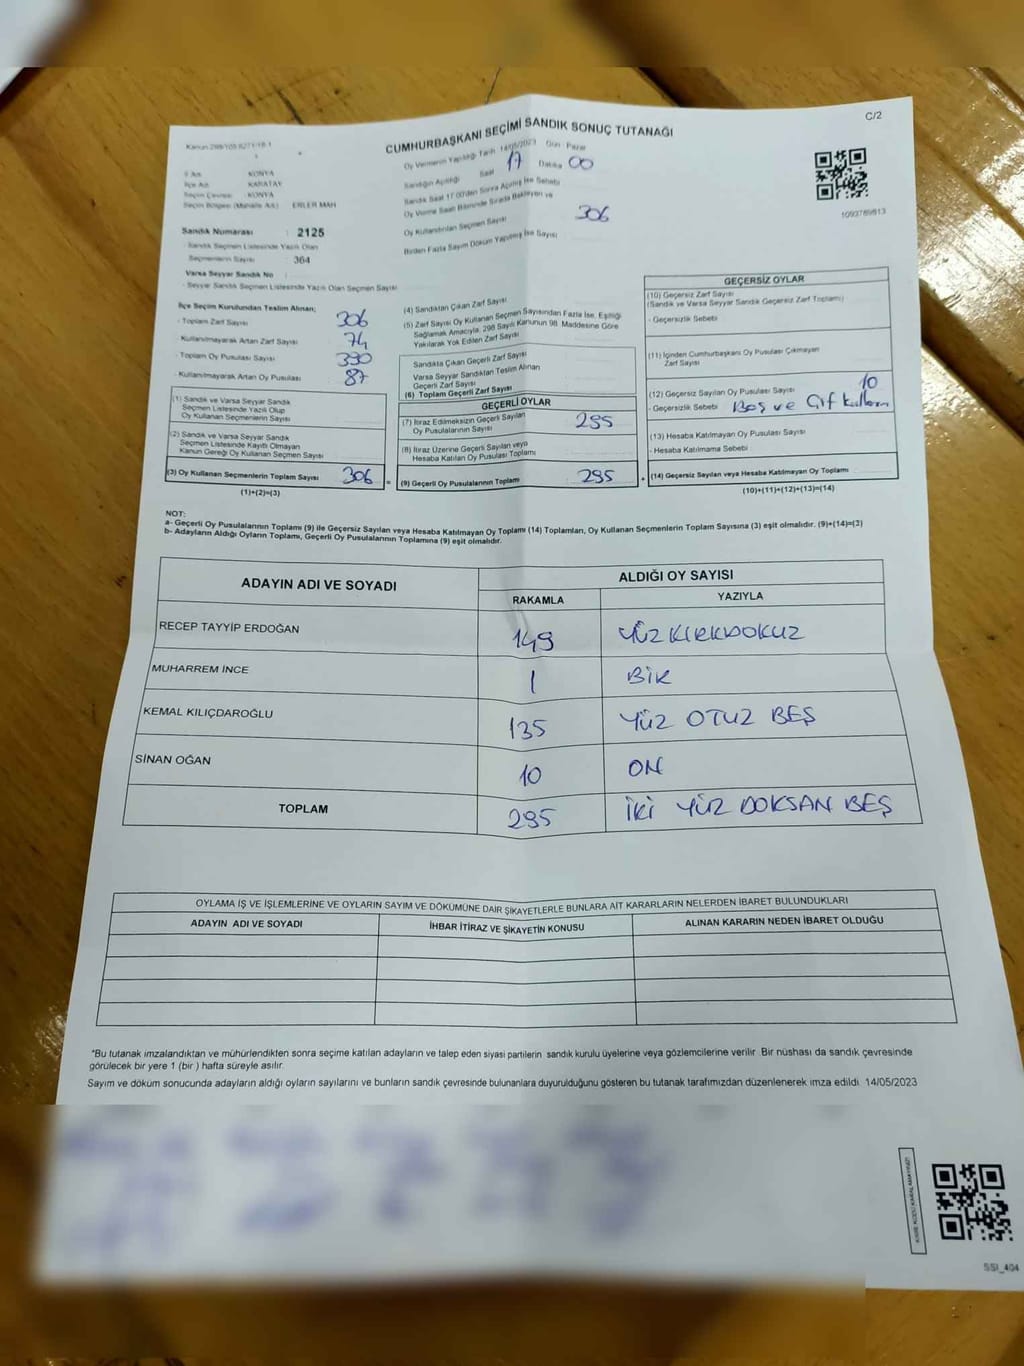 C/2
CUMHURBAŞKANI SEÇİMİ SANDIK SONUÇ TUTANAĞI
Oy Vermenin Yapıldığı Tarih 14/05/2023 Gün Pazar
Sandığın Açıldığı Saat 17 Dakika 00
Sandık Saat 17:00'den Sonra Açılmış İse Sebebi
Oy Verme Saati Bitiminde Sırada Bekleyen ve
Oy Kullandırılan Seçmen Sayısı 306
Birden Fazla Sayım Döküm Yapılmış İse Sayısı
1093789813
İl Adı KONYA
İlçe Adı KARATAY
Seçim Çevresi KONYA
Seçim Bölgesi (Mahalle Adı) ERLER MAH
Sandık Numarası : 2125
- Sandık Seçmen Listesinde Yazılı Olan
Seçmenlerin Sayısı : 364
Varsa Seyyar Sandık No :
- Seyyar Sandık Seçmen Listesinde Yazılı Olan Seçmen Sayısı
İlçe Seçim Kurulundan Teslim Alınan;
- Toplam Zarf Sayısı 306
- Kullanılmayarak Artan Zarf Sayısı 74
- Toplam Oy Pusulası Sayısı 390
- Kullanılmayarak Artan Oy Pusulası 87
(1) Sandık ve Varsa Seyyar Sandık
Seçmen Listesinde Yazılı Olup
Oy Kullanan Seçmenlerin Sayısı
(2) Sandık ve Varsa Seyyar Sandık
Seçmen Listesinde Kayıtlı Olmayan
Kanun Gereği Oy Kullanan Seçmen Sayısı
(3) Oy Kullanan Seçmenlerin Toplam Sayısı 306 =
(1)+(2)=(3)
(4) Sandıktan Çıkan Zarf Sayısı
(5) Zarf Sayısı Oy Kullanan Seçmen Sayısından Fazla İse, Eşitliği
Sağlamak Amacıyla, 298 Sayılı Kanunun 98. Maddesine Göre
Yakılarak Yok Edilen Zarf Sayısı
Sandıkta Çıkan Geçerli Zarf Sayısı
Varsa Seyyar Sandıktan Teslim Alınan
Geçerli Zarf Sayısı
(6) Toplam Geçerli Zarf Sayısı
GEÇERLİ OYLAR
(7) İtiraz Edilmeksizin Geçerli Sayılan
Oy Pusulalarının Sayısı 295
(8) İtiraz Üzerine Geçerli Sayılan veya
Hesaba Katılan Oy Pusulası Toplamı
(9) Geçerli Oy Pusulalarının Toplamı 295 +
GEÇERSİZ OYLAR
(10) Geçersiz Zarf Sayısı
(Sandık ve Varsa Seyyar Sandık Geçersiz Zarf Toplamı)
- Geçersizlik Sebebi
(11) İçinden Cumhurbaşkanı Oy Pusulası Çıkmayan
Zarf Sayısı
(12) Geçersiz Sayılan Oy Pusulası Sayısı 10
- Geçersizlik Sebebi Boş ve Çift Kullanım
(13) Hesaba Katılmayan Oy Pusulası Sayısı
- Hesaba Katılmama Sebebi
(14) Geçersiz Sayılan veya Hesaba Katılmayan Oy Toplamı
(10)+(11)+(12)+(13)=(14)
NOT:
a- Geçerli Oy Pusulalarının Toplamı (9) ile Geçersiz Sayılan veya Hesaba Katılmayan Oy Toplamı (14) Toplamları, Oy Kullanan Seçmenlerin Toplam Sayısına (3) eşit olmalıdır. (9)+(14)=(3)
b- Adayların Aldığı Oyların Toplamı, Geçerli Oy Pusulalarının Toplamına (9) eşit olmalıdır.
ADAYIN ADI VE SOYADI ALDIĞI OY SAYISI
RAKAMLA YAZIYLA
RECEP TAYYİP ERDOĞAN 149 YÜZ KIRKDOKUZ
MUHARREM İNCE 1 BİR
KEMAL KILIÇDAROĞLU 135 YÜZ OTUZ BEŞ
SİNAN OĞAN 10 ON
TOPLAM 295 İKİ YÜZ DOKSAN BEŞ
OYLAMA İŞ VE İŞLEMLERİNE VE OYLARIN SAYIM VE DÖKÜMÜNE DAİR ŞİKAYETLERLE BUNLARA AİT KARARLARIN NELERDEN İBARET BULUNDUKLARI
ADAYIN ADI VE SOYADI İHBAR İTİRAZ VE ŞİKAYETİN KONUSU ALINAN KARARIN NEDEN İBARET OLDUĞU
*Bu tutanak imzalandıktan ve mühürlendikten sonra seçime katılan adayların ve talep eden siyasi partilerin sandık kurulu üyelerine veya gözlemcilerine verilir. Bir nüshası da sandık çevresinde
görülecek bir yere 1 (bir ) hafta süreyle asılır.
Sayım ve döküm sonucunda adayların aldığı oyların sayılarını ve bunların sandık çevresinde bulunanlara duyurulduğunu gösteren bu tutanak tarafımızdan düzenlenerek imza edildi. 14/05/2023
SSI_404